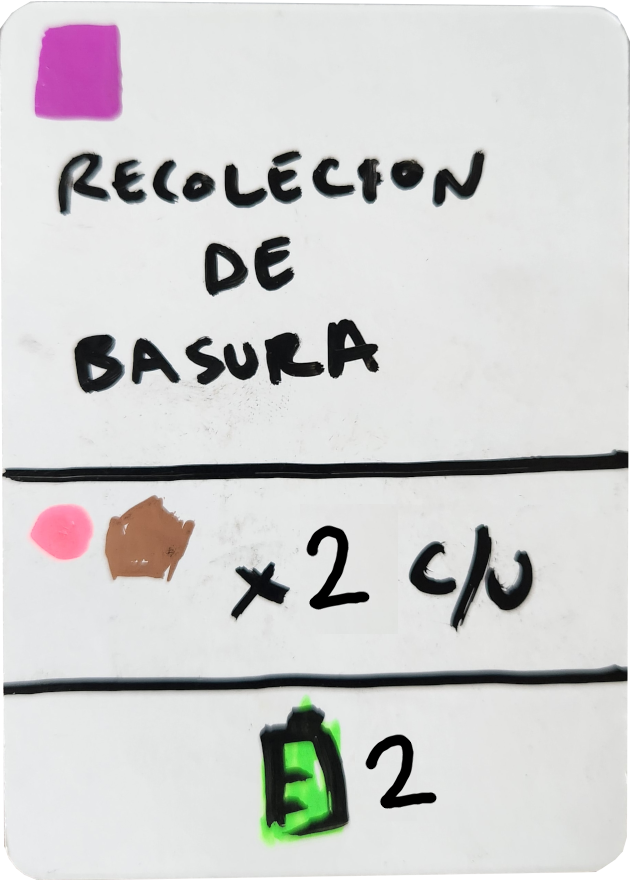 RECOLECION
DE
BASURA
x2 c/u
2